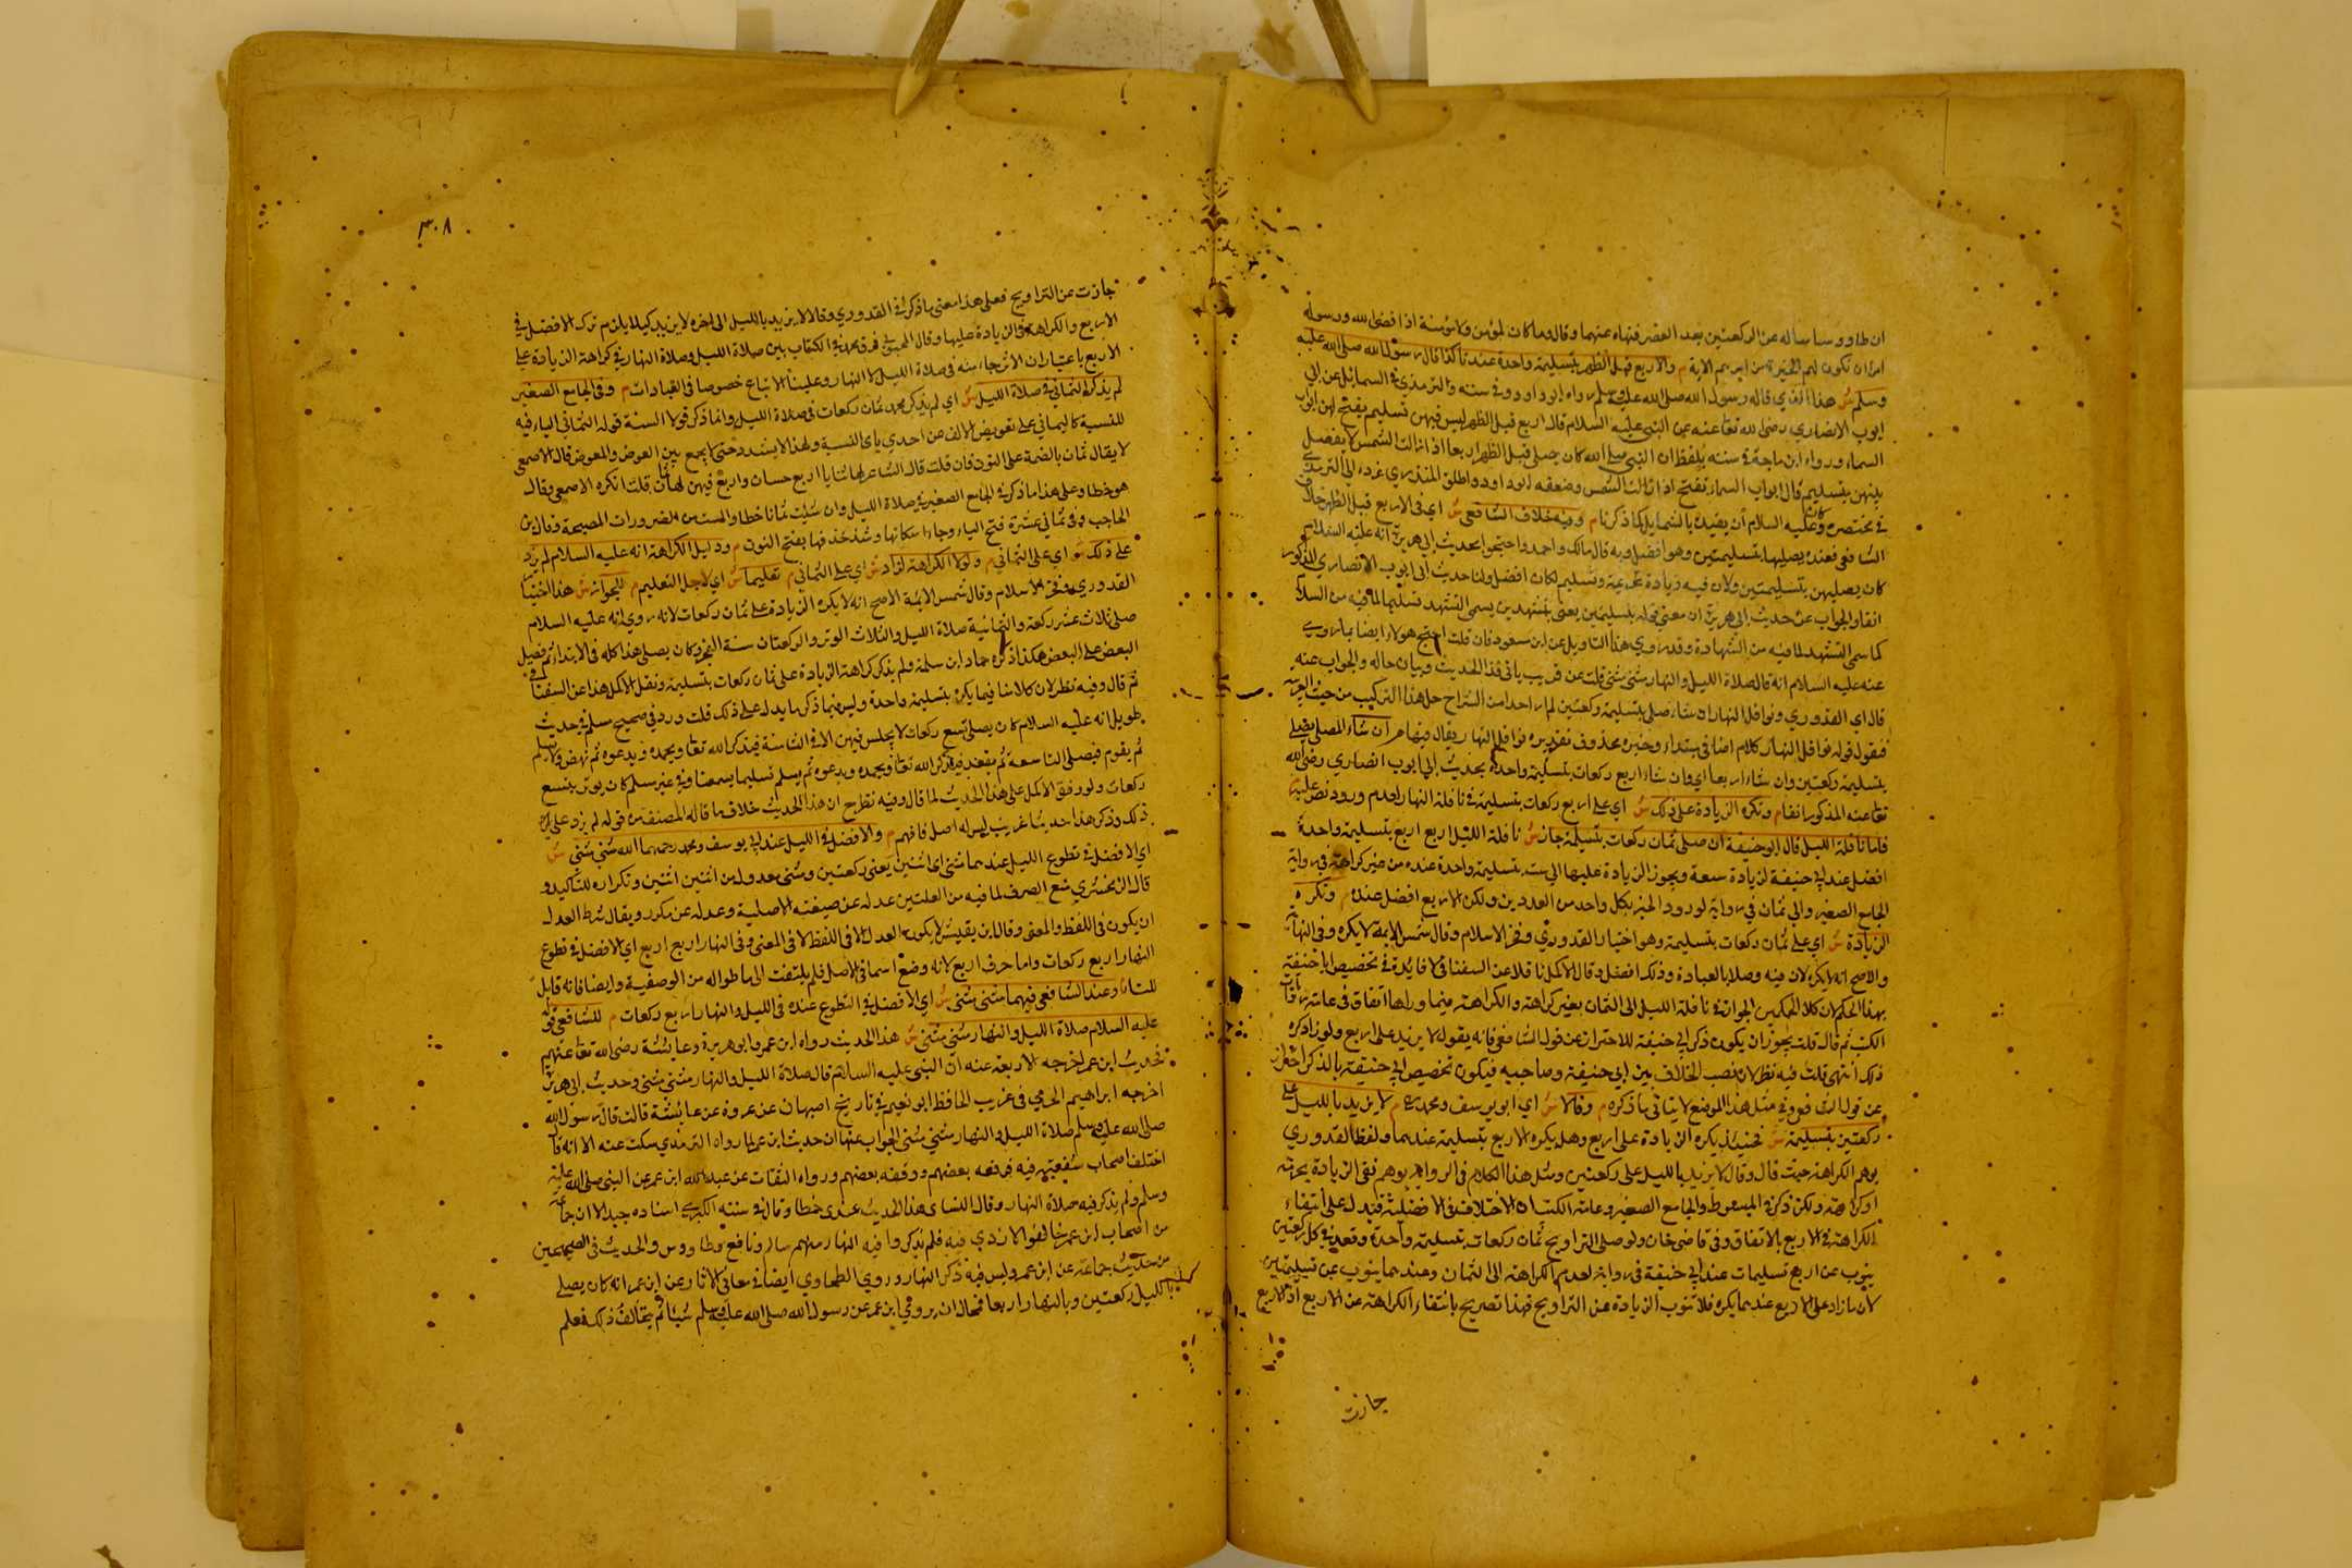 ان طاووسا ساله عن الركعتين بعد العصر فنهاه عنهما وقال وما كان لمؤمن ولا مؤمنة اذا قضى الله ورسوله
امرا ان تكون لهم الخيرة من امرهم الاية م والاربع قبل الظهر بتسليمة واحدة عندنا كذا قال رسول الله صلى الله عليه
وسلم ش هذا الذي قاله رسول الله صلى الله عليه وسلم رواه ابو داوود في سننه والترمذي في الشمائل عن ابي
ايوب الانصاري رضي الله تعا عنه عن النبي عليه السلام قال اربع قبل الظهر ليس فيهن تسليم يفتح لهن ابواب
السماء ورواه ابن ماجة في سننه بلفظ ان النبي صلى الله كان يصلي قبل الظهر اربعا اذا زالت الشمس لا يفصل
بينهن بتسليم قال ابواب السماء تفتح اذا زالت الشمس وضعفه ابو داود واطلق المنذري عزوه الى الترمذي
في مختصره وكان عليه السلام ان يقيده بالشمايل كما ذكرنا م وفيه خلاف الشافعي ش اي في الاربع قبل الظهر خلاف
الشافعي فعنده يصليها بتسليمتين وهو افضل وبه قال مالك واحمد واحتجوا بحديث ابي هريرة انه عليه السلام
كان يصليهن بتسليمتين ولان فيه زيادة تحريمة وتسليم لكان افضل ولنا حديث ابي ايوب الانصاري المذكور
انفا والجواب عن حديث ابي هريرة ان معنى قوله بتسليمتين يعني بتشهدين يسمى التشهد تسليما لما فيه من السلام
كما سمى التشهد لما فيه من الشهادة وقد روي هذا التاويل عن ابن مسعود فان قلت احتج هولاء ايضا بما روي
عنه عليه السلام انه قال صلاة الليل والنهار مثنى مثنى قلت عن قريب ياتي هذا الحديث وبيان حاله والجواب عنه م
قال اي القدوري ونوافل النهار ان شاء صلى بتسليمة ركعتين لم ار احدا من الشراح حل هذا التركيب من حيث العربية
فنقول قوله نوافل النهار كلام اضافي مبتداء وخبره محذوف تقديره نوافل النهار يقال فيها م ان شاء المصلي يصلي
بتسليمة ركعتين وان شاء اربعا اي وان شاء اربع ركعات بتسليمة واحدة بحديث ابي ايوب انصاري رضي الله
تعا عنه المذكور انفا م وتكره الزيادة على ذلك ش اي على اربع ركعات بتسليمة في نافلة النهار لعدم ورود نص عليه م
فاما نافلة الليل قال ابو حنيفة ان صلى ثمان ركعات بتسليمة جاز ش نافلة الليل اربع اربع بتسليمة واحدة
افضل عند ابي حنيفة لزيادة سعة ويجوز الزيادة عليها الى ست بتسليمة واحدة عنده من غير كراهة في رواية
الجامع الصغير والى ثمان في رواية لورود الخبر بكل واحد من العددين ولكن الاربع افضل عنده م وتكره
الزيادة ش اي على ثمان ركعات بتسليمة وهو اختيار القدوري وفخر الاسلام وقال شمس الائمة لا يكره وفي النهاية
والاصح انه لا يكره لان فيه وصلا بالعبادة وذلك افضل وقال الاكمل ناقلا عن السغناقي لا فائدة في تخصيص ابا حنيفة
بهذا الحكم لان كلا الحكمين الجواز في نافلة الليل الى الثمان بغير كراهة والكراهة فيما وراها اتفاق في عامة روايات
الكتب ثم قال قلت يجوز ان يكون ذكر ابي حنيفة للاحتراز عن قول الشافعي فانه يقول لا يزيد على اربع ولو زاد كره
ذلك انتهى قلت فيه نظر لان نصب الخلاف بين ابي حنيفة وصاحبيه فيكون تخصيص ابي حنيفة بالذكر احتراز
عن قول الشافعي في مثل هذا الموضع لا يتاتى ما ذكره م وقالا ش اي ابو يوسف ومحمد م لا يزيد بالليل على
ركعتين بتسليمة ش فحينئذ يكره الزيادة على اربع وهل يكره الاربع بتسليمة عندهما ولفظ القدوري
يوهم الكراهة حيث قال وقالا لا يزيد بالليل على ركعتين ومثل هذا الكلام في الرواية يوهم نفي الزيادة بحرمة
او كراهة ولكن ذكر في المبسوط والجامع الصغير وعامة الكتب ان الاختلاف في الافضلية فيدل على انتفاء
الكراهة في الاربع بالاتفاق وفي قاضي خان ولو صلى التراويح ثمان ركعات بتسليمة واحدة وقعد في كل ركعتين
ينوب عن اربع تسليمات عند ابي حنيفة في رواية لعدم الكراهة الى الثمان وعندهما ينوب عن تسليمتين
لان ما زاد على الاربع عندهما يكره فلا تنوب الزيادة عن التراويح فهذا تصريح بانتفاء الكراهة عن الاربع اذ الاربع
جازت
٣٠٨
جازت عن التراويح فعلى هذا معنى ما ذكر في القدوري وقالا لا يزيد بالليل الى اخره لا يزيد كيلا يلزم ترك الافضل في
الاربع والكراهة في الزيادة عليها وقال المحبوبي فرق محمد في الكتاب بين صلاة الليل وصلاة النهار في كراهة الزيادة على
الاربع باعتبار ان الاثر جاء منه في صلاة الليل لا النهار وعلينا الاتباع خصوصا في العبادات م وفي الجامع الصغير
لم يذكر الثماني في صلاة الليل ش اي لم يذكر محمد ثمان ركعات في صلاة الليل وانما ذكر قولا السنة قوله الثماني الياء فيه
للنسبة كاليماني على تعويض الالف عن احدي ياي النسبة ولهذا لا يشدد حتى لا يجمع بين العوض والمعوض قال الاصمعي
لا يقال ثمان بالضمة على النون فان قلت قال الشاعر لها ثنايا اربع حسان واربع فيهن لها ثمان قلت انكره الاصمعي وقال
هو خطا وعلى هذا ما ذكر في الجامع الصغير في صلاة الليل وان شئت ثمانا خطا والست من الضرورات المصيحة وقال ابن
الحاجب وفي ثماني عشرة فتح الياء وجاء اسكانها وشذ حذفها بفتح النون م ودليل الكراهة انه عليه السلام لم يزد
على ذلك ش اي على الثماني م ولولا الكراهة لزاد ش اي على الثماني م تعليما ش اي لاجل التعليم م للجواز ش هذا اختيار
القدوري وفخر الاسلام وقال شمس الائمة الاصح انه لا يكره الزيادة على ثمان ركعات لانه روي انه عليه السلام
صلى ثلاث عشر ركعة والثمانية صلاة الليل والثلاث الوتر والركعتان سنة الفجر وكان يصلي هذا كله في الابتداء ثم فصل
البعض على البعض هكذا ذكره حماد ابن سلمة ولم يذكر كراهة الزيادة على ثمان ركعات بتسليمة ونقل الاكمل هذا عن السغناقي
ثم قال وفيه نظر لان كلامنا فيما يكره بتسليمة واحدة وليس فيما ذكر ما يدل على ذلك قلت ورد في صحيح مسلم في حديث
طويل انه عليه السلام كان يصلي تسع ركعات لا يجلس فيهن الا في الثامنة فيذكر الله تعا ويحمده ويدعوه ثم ينهض ولا يسلم
ثم يقوم فيصلي التاسعة ثم يقعد فيذكر الله تعا ويحمده ويدعوه ثم يسلم تسليما يسمعنا وفي غير مسلم كان يوتر بتسع
ركعات ولو وقف الاكمل على هذا الحديث لما قال وفيه نظر ح ان هذا الحديث خلاف ما قاله المصنف من قوله لم يزد على
ذلك وذكر هذا حديثا غريب ليس له اصل فافهم م والافضل في الليل عند ابي يوسف ومحمد رحمهما الله مثنى مثنى ش
اي الافضل في تطوع الليل عندهما مثنى اي اثنين يعني ركعتين ومثنى معدول من اثنين اثنين وتكراره للتاكيد و
قال الزمخشري منع الصرف لما فيه من العدلتين عدله عن صيغته الاصلية وعدله عن مكرر ويقال شرط العدل
ان يكون في اللفظ والمعنى وقال ابن يعيش لا يكون العدل الا في اللفظ لا في المعنى وفي النهار اربع اربع اي الافضل في تطوع
النهار اربع ركعات واما حرف اربع لانه وضع اسما في الاصل فلم يلتفت الى ما طرا له من الوصفية وايضا فانه قابل
للتاء وعند الشافعي فيهما مثنى مثنى ش اي الافضل في التطوع عنده في الليل والنهار اربع ركعات م للشافعي قوله
عليه السلام صلاة الليل والنهار مثنى مثنى ش هذا الحديث رواه ابن عمر وابو هريرة وعائشة رضي الله تعا عنهم
فحديث ابن عمر اخرجه الاربعة عنه ان النبي عليه السلام قال صلاة الليل والنهار مثنى مثنى وحديث ابي هريرة
اخرجه ابراهيم الحربي في غريب الحافظ ابو نعيم في تاريخ اصبهان عن عروة عن عائشة قالت قال رسول الله
صلى الله عليه وسلم صلاة الليل والنهار مثنى مثنى الجواب عنها ان حديث ابن عمر لما رواه الترمذي سكت عنه الا انه قال
اختلف اصحاب شعبة فيه فرفعه بعضهم ووقفه بعضهم ورواه الثقات عن عبد الله ابن عمر عن النبي صلى الله عليه
وسلم ولم يذكر فيه صلاة النهار وقال النساي هذا الحديث عندي خطا وقال في سننه الكبري اسناده جيد الا ان جماعة
من اصحاب ابن عمر خالفوا الازدي فيه فلم يذكروا فيه النهار منهم سالم ونافع وطاووس والحديث في الصحيحين
من حديث جماعة عن ابن عمر وليس فيه ذكر النهار وروي الطحاوي ايضا في معاني الاثار عن ابن عمر انه كان يصلي
بالليل ركعتين وبالنهار اربعا فمحال ان يروي ابن عمر عن رسول الله صلى الله عليه وسلم شيئا ثم يخالف ذلك فعلم